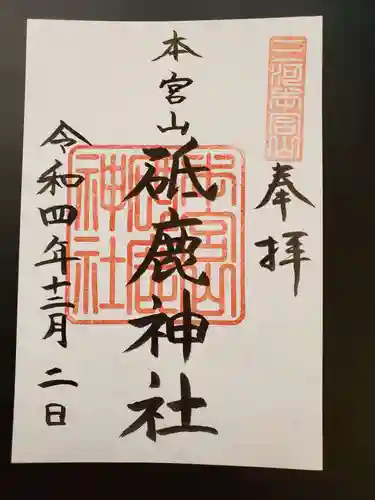 三河本宮山
奉拝
本宮山
砥鹿神社
令和四年十二月二日